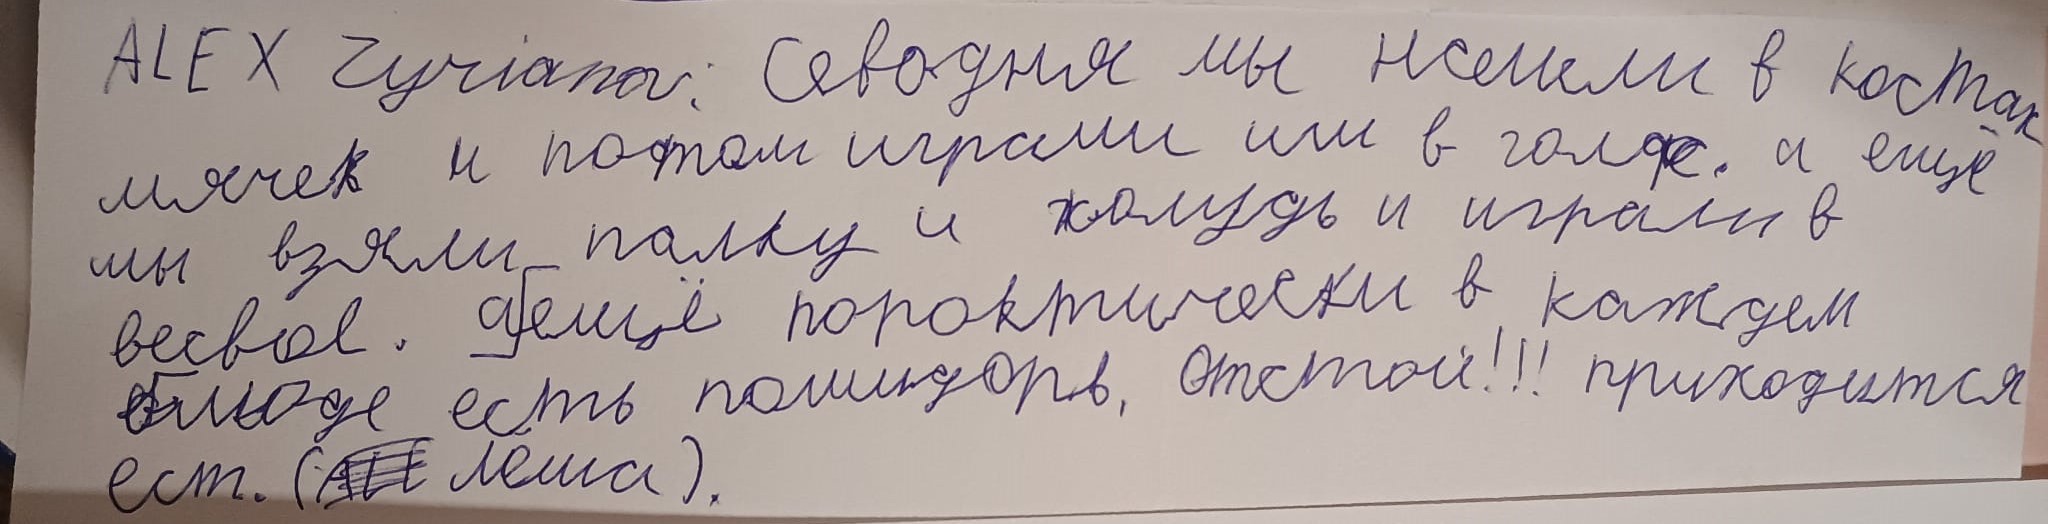 ALEX Zyrianov: Севодня мы нашли в костах
мячек и потом играми им в голф. а ещё
мы взяли палку и жолудь и играли в
весвоl. а ещё пороктически в каждем
блюде есть помидорь, Отстой!!! приходится
ест. (Лёша).